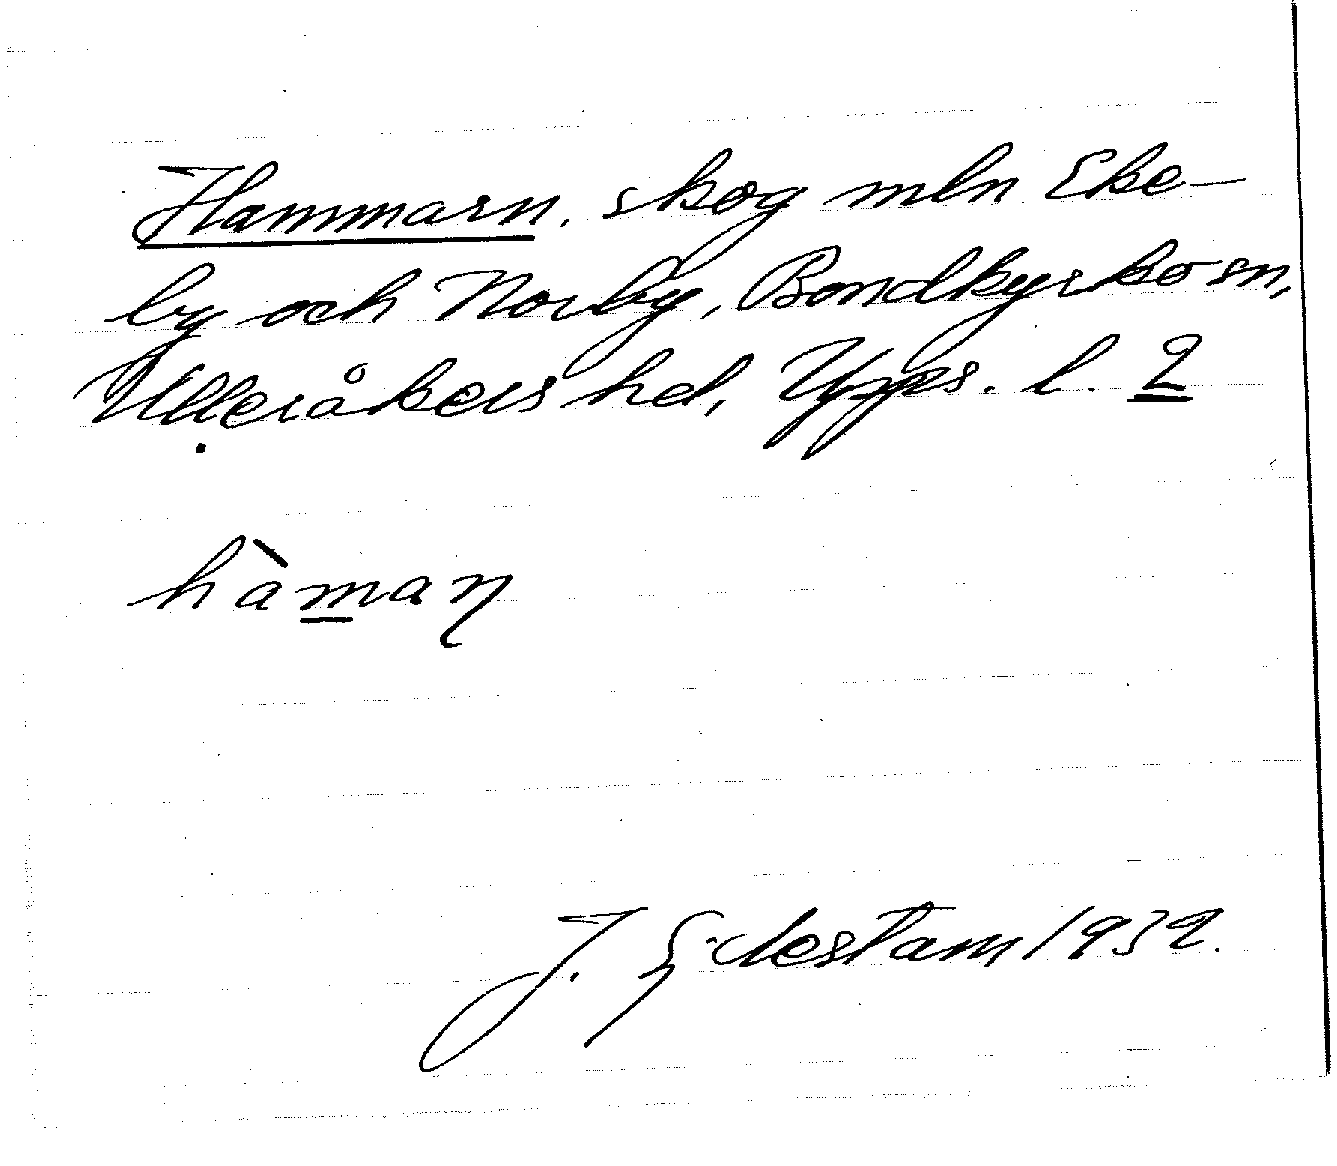 Hammarn, skog mln Eke-
by och Norby, Bondkyrko sn,
Ulleråkers hd, Upps. l. 2
hàmaŋ
J. Götlestam 1932.